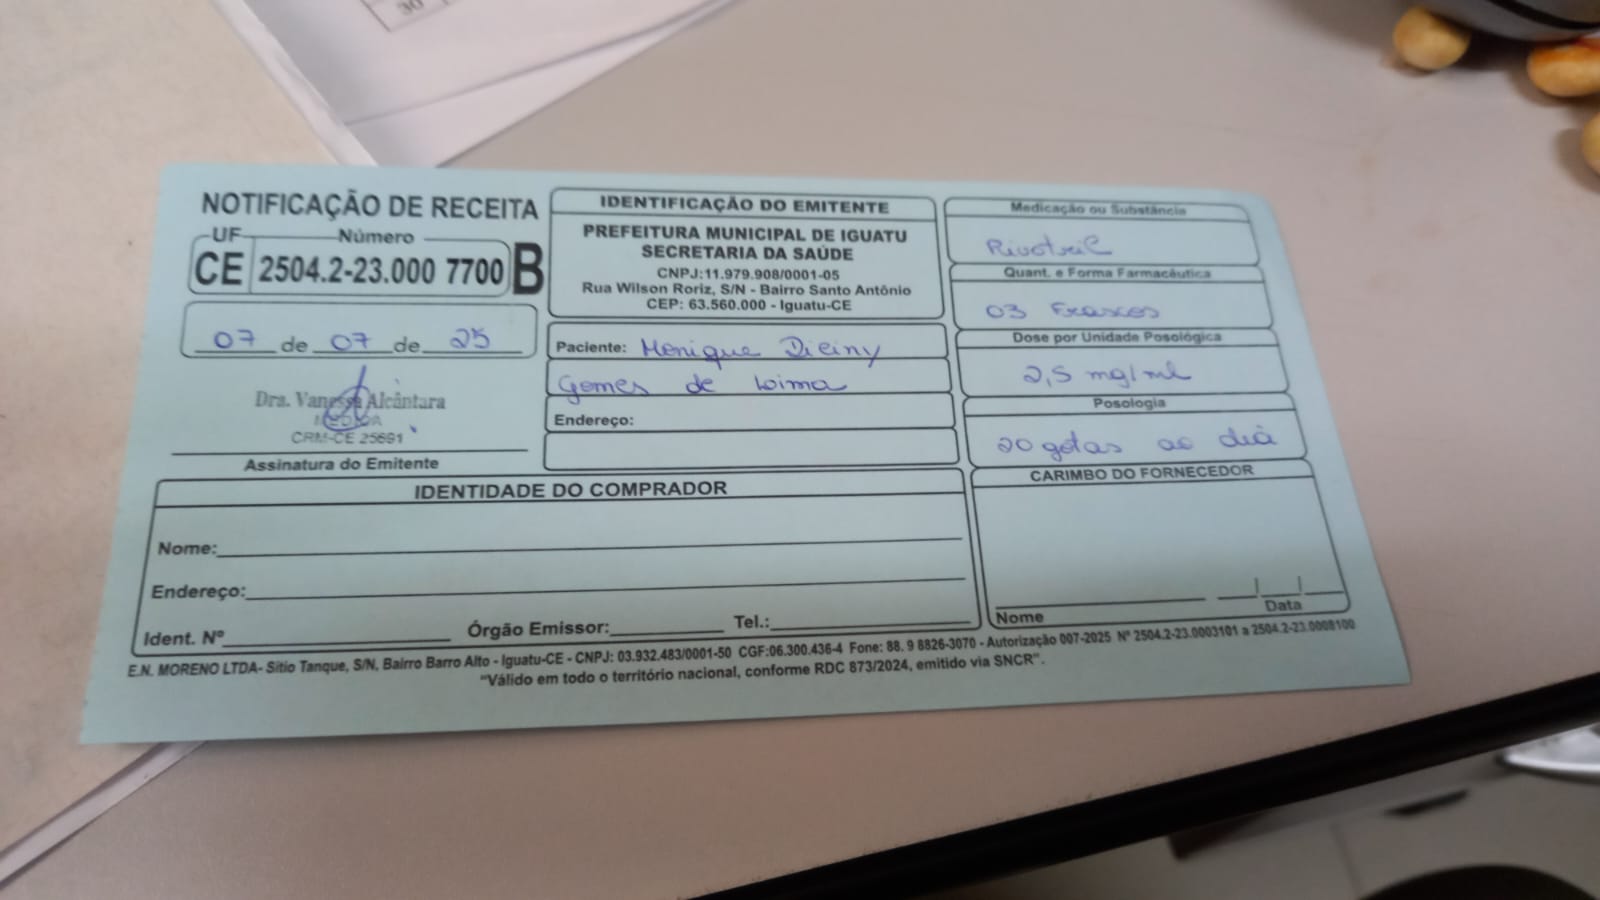 30
NOTIFICAÇÃO DE RECEITA
UF Número
CE 2504.2-23.000 7700 B
07 de 07 de 25
Dra. Vanessa Alcântara
MÉDICA
CRM-CE 25691
Assinatura do Emitente
IDENTIFICAÇÃO DO EMITENTE
PREFEITURA MUNICIPAL DE IGUATU
SECRETARIA DA SAÚDE
CNPJ:11.979.908/0001-05
Rua Wilson Roriz, S/N - Bairro Santo Antônio
CEP: 63.560.000 - Iguatu-CE
Paciente: Monique Dieiny
Gomes de Loima
Endereço:
Medicação ou Substância
Rivotril
Quant. e Forma Farmacêutica
03 Frascos
Dose por Unidade Posológica
2,5 mg/ml
Posologia
20 gotas ao dia
IDENTIDADE DO COMPRADOR
Nome:
Endereço:
Ident. Nº Órgão Emissor: Tel.:
CARIMBO DO FORNECEDOR
Nome Data
E.N. MORENO LTDA- Sítio Tanque, S/N, Bairro Barro Alto - Iguatu-CE - CNPJ: 03.932.483/0001-50 CGF:06.300.436-4 Fone: 88. 9 8826-3070 - Autorização 007-2025 Nº 2504.2-23.0003101 a 2504.2-23.0008100
"Válido em todo o território nacional, conforme RDC 873/2024, emitido via SNCR".